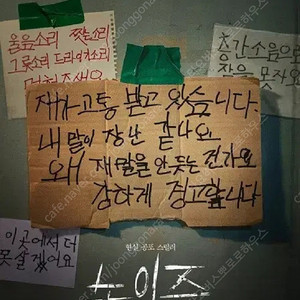 울음소리 찢는소리
층간소음으로
잠을 못자요
제가 고통 받고 있습니다.
내 말이 장난 같나요
왜 제 말을 안 듣는 건가요
강하게 경고합니다
이곳에서 더
못 살겠어요
현실 공포 스릴러
노이즈